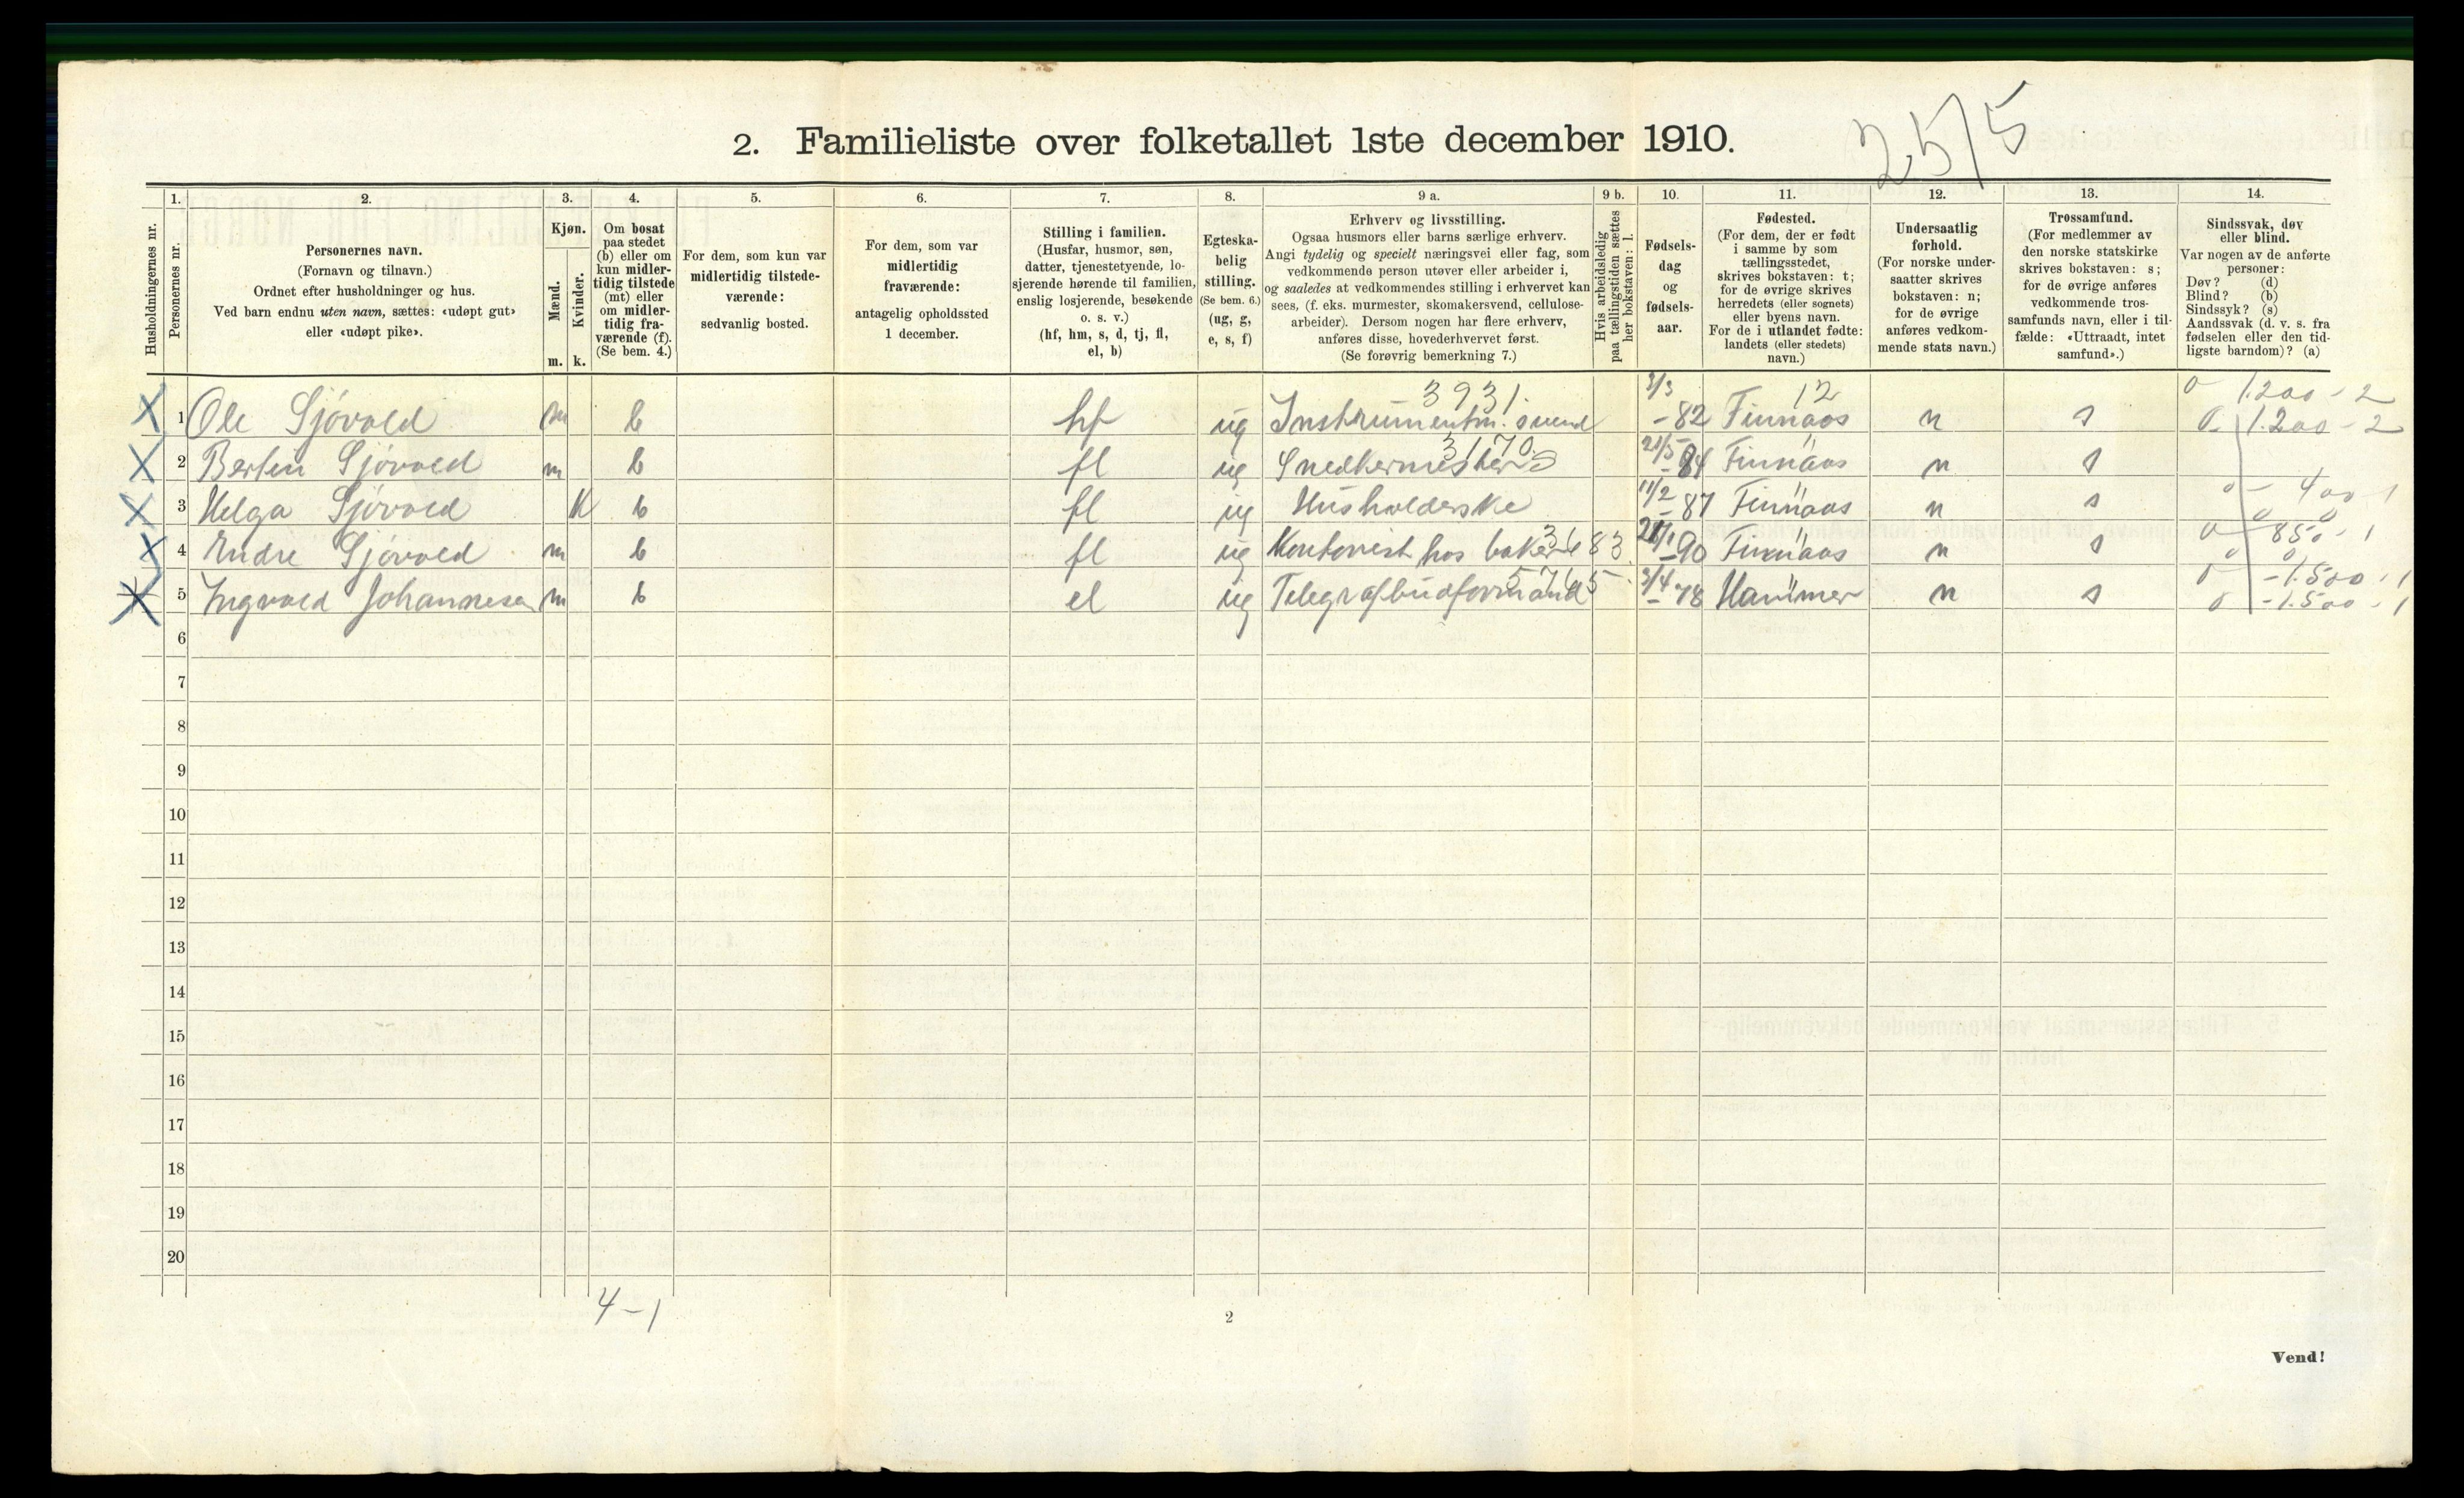 25/5
2. Familieliste over folketallet 1ste december 1910.
Husholdningernes nr.
1.
Personernes nr.
2.
Personernes navn.
(Fornavn og tilnavn.)
Ordnet efter husholdninger og hus.
Ved barn endnu uten navn, sættes: «udøpt gut»
eller «udøpt pike».
3.
Kjøn.
Mænd.
Kvinder.
m. k.
4.
Om bosat
paa stedet
(b) eller om
kun midler-
tidig tilstede
(mt) eller
om midler-
tidig fra-
værende (f).
(Se bem. 4.)
5.
For dem, som kun var
midlertidig tilstede-
værende:
sedvanlig bosted.
6.
For dem, som var
midlertidig
fraværende:
antagelig opholdssted
1 december.
7.
Stilling i familien.
(Husfar, husmor, søn,
datter, tjenestetyende, lo-
sjerende hørende til familien,
enslig losjerende, besøkende
o. s. v.)
(hf, hm, s, d, tj, fl,
el, b)
8.
Egteska-
belig
stilling.
(Se bem. 6.)
(ug, g,
e, s, f)
9 a.
Erhverv og livsstilling.
Ogsaa husmors eller barns særlige erhverv.
Angi tydelig og specielt næringsvei eller fag, som
vedkommende person utøver eller arbeider i,
og saaledes at vedkommendes stilling i erhvervet kan
sees, (f. eks. murmester, skomakersvend, cellulose-
arbeider). Dersom nogen har flere erhverv,
anføres disse, hovederhvervet først.
(Se forøvrig bemerkning 7.)
9 b.
Hvis arbeidsledig
paa tællingstiden sættes
her bokstaven: l.
10.
Fødsels-
dag
og
fødsels-
aar.
11.
Fødested.
(For dem, der er født
i samme by som
tællingsstedet,
skrives bokstaven: t;
for de øvrige skrives
herredets (eller sognets)
eller byens navn.
For de i utlandet fødte:
landets (eller stedets)
navn.)
12.
Undersaatlig
forhold.
(For norske under-
saatter skrives
bokstaven: n;
for de øvrige
anføres vedkom-
mende stats navn.)
13.
Trossamfund.
(For medlemmer av
den norske statskirke
skrives bokstaven: s;
for de øvrige anføres
vedkommende tros-
samfunds navn, eller i til-
fælde: «Uttraadt, intet
samfund».)
14.
Sindssvak, døv
eller blind.
Var nogen av de anførte
personer:
Døv? (d)
Blind? (b)
Sindssyk? (s)
Aandssvak (d. v. s. fra
fødselen eller den tid-
ligste barndom)? (a)
3931. 3/3 12 0 1.200 - 2
X 1 Ole Sjövold m b hf ug Instrumentm. svend -82 Finnaas n s 0 - 1.200 - 2
3170. 21/5
X 2 Bertin Sjövold m b fl ug Snedkermester -84 Finnaas n s
11/2 0 - 400 - 1
X 3 Helga Sjövold K b fl ug Husholderske -87 Finnaas n s 0 0
3683 0 850 - 1
X 4 Endre Sjövold m b fl ug Kontorist hos baker -90 Finnaas n s 0 0
5765. 3/4 0 - 1.500 - 1
X 5 Ingvald Johannesen m b el ug Telegrafbudformand -78 Hammer n s 0 - 1.500 - 1
6
7
8
9
10
11
12
13
14
15
16
17
18
19
20
4 - 1
2
Vend!